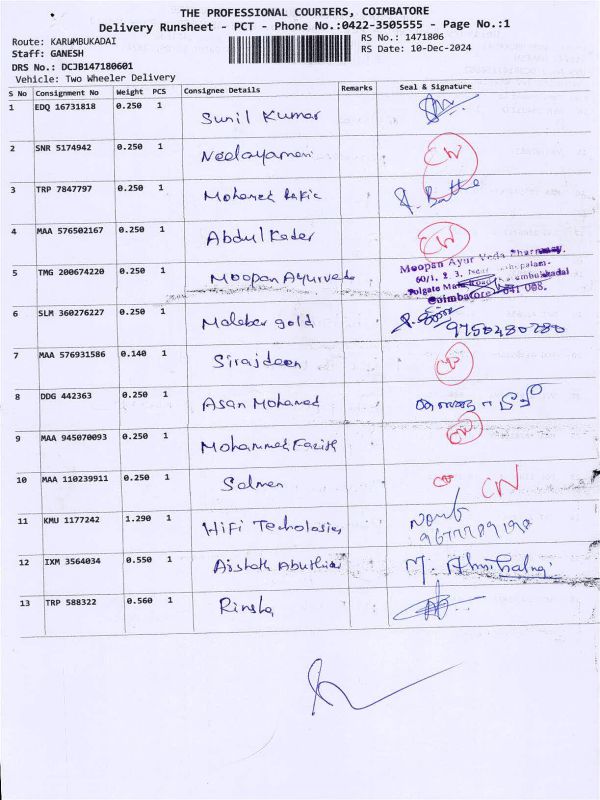 THE PROFESSIONAL COURIERS, COIMBATORE
Delivery Runsheet - PCT - Phone No.:0422-3505555 - Page No.:1
Route: KARUMBUKADAI
RS No.: 1471806
Staff: GANESH
RS Date: 10-Dec-2024
DRS No.: DCJB147180601
Vehicle: Two Wheeler Delivery
S No Consignment No Weight PCS Consignee Details Remarks Seal & Signature
1 EDQ 16731818 0.250 1 Sunil Kumar
2 SNR 5174942 0.250 1 Neelayameni CN
3 TRP 7847797 0.250 1 Mohamed Rafic
4 MAA 576502167 0.250 1 Abdul Kader CN
5 TMG 200674220 0.250 1 Moopan Ayurveda
Moopan Ayur Veda Pharmacy.
60/1, 2 3,
Coimbatore - 641 008.
6 SLM 360276227 0.250 1 Malabar gold
9750480780
7 MAA 576931586 0.140 1 Sirajdeen
8 DDG 442363 0.250 1 Asan Mohamed
9 MAA 945070093 0.250 1 Mohammed Fazith CN
10 MAA 110239911 0.250 1 Salman CN
11 KMU 1177242 1.290 1 HiFi Techologies
12 IXM 3564034 0.550 1
13 TRP 588322 0.560 1 Rinsha